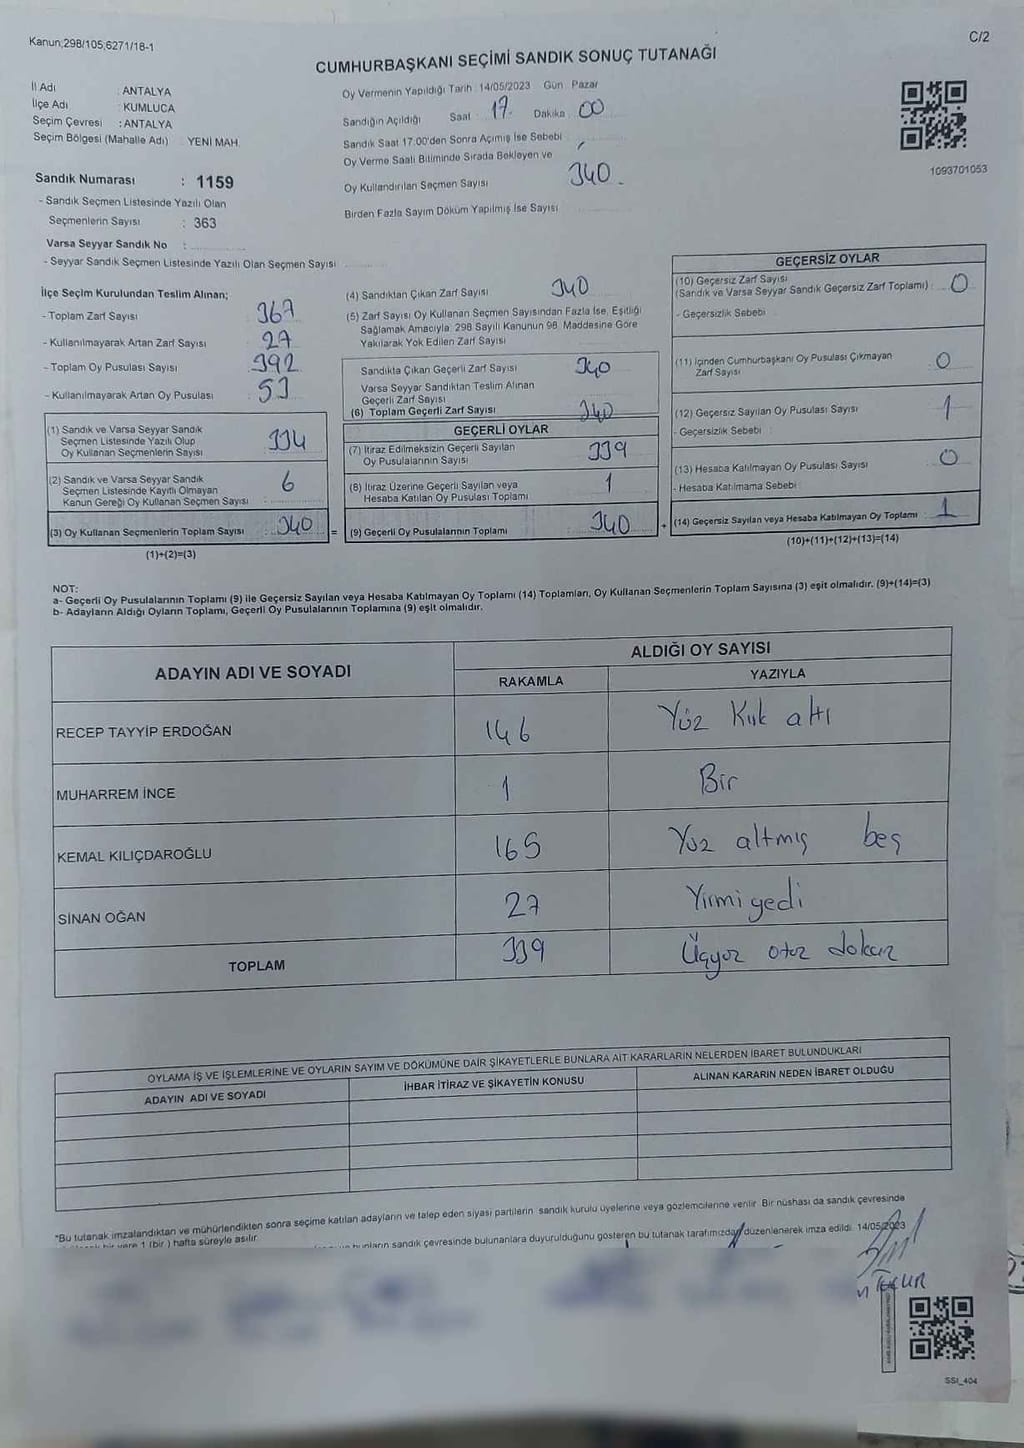 Kanun;298/105;6271/18-1
C/2
CUMHURBAŞKANI SEÇİMİ SANDIK SONUÇ TUTANAĞI
İl Adı : ANTALYA
İlçe Adı : KUMLUCA
Seçim Çevresi : ANTALYA
Seçim Bölgesi (Mahalle Adı) YENİ MAH.
Sandık Numarası : 1159
- Sandık Seçmen Listesinde Yazılı Olan
Seçmenlerin Sayısı : 363
Varsa Seyyar Sandık No :
- Seyyar Sandık Seçmen Listesinde Yazılı Olan Seçmen Sayısı
Oy Vermenin Yapıldığı Tarih : 14/05/2023 Gün : Pazar
Sandığın Açıldığı Saat : 17 Dakika : 00
Sandık Saat 17.00'den Sonra Açımış İse Sebebi
Oy Verme Saati Bitiminde Sırada Bekleyen ve
Oy Kullandırılan Seçmen Sayısı 340
Birden Fazla Sayım Döküm Yapılmış İse Sayısı
1093701053
İlçe Seçim Kurulundan Teslim Alınan;
- Toplam Zarf Sayısı 367
- Kullanılmayarak Artan Zarf Sayısı 27
- Toplam Oy Pusulası Sayısı 392
- Kullanılmayarak Artan Oy Pusulası 53
(1) Sandık ve Varsa Seyyar Sandık
Seçmen Listesinde Yazılı Olup
Oy Kullanan Seçmenlerin Sayısı 334
(2) Sandık ve Varsa Seyyar Sandık
Seçmen Listesinde Kayıtlı Olmayan
Kanun Gereği Oy Kullanan Seçmen Sayısı 6
(3) Oy Kullanan Seçmenlerin Toplam Sayısı 340 =
(1)+(2)=(3)
(4) Sandıktan Çıkan Zarf Sayısı 340
(5) Zarf Sayısı Oy Kullanan Seçmen Sayısından Fazla İse, Eşitliği
Sağlamak Amacıyla, 298 Sayılı Kanunun 98. Maddesine Göre
Yakılarak Yok Edilen Zarf Sayısı
Sandıkta Çıkan Geçerli Zarf Sayısı 340
Varsa Seyyar Sandıktan Teslim Alınan
Geçerli Zarf Sayısı
(6) Toplam Geçerli Zarf Sayısı 340
GEÇERLİ OYLAR
(7) İtiraz Edilmeksizin Geçerli Sayılan
Oy Pusulalarının Sayısı 339
(8) İtiraz Üzerine Geçerli Sayılan veya
Hesaba Katılan Oy Pusulası Toplamı 1
(9) Geçerli Oy Pusulalarının Toplamı 340 +
GEÇERSİZ OYLAR
(10) Geçersiz Zarf Sayısı
(Sandık ve Varsa Seyyar Sandık Geçersiz Zarf Toplamı) : 0
- Geçersizlik Sebebi
(11) İçinden Cumhurbaşkanı Oy Pusulası Çıkmayan
Zarf Sayısı 0
(12) Geçersiz Sayılan Oy Pusulası Sayısı 1
- Geçersizlik Sebebi
(13) Hesaba Katılmayan Oy Pusulası Sayısı 0
- Hesaba Katılmama Sebebi
(14) Geçersiz Sayılan veya Hesaba Katılmayan Oy Toplamı 1
(10)+(11)+(12)+(13)=(14)
NOT:
a- Geçerli Oy Pusulalarının Toplamı (9) ile Geçersiz Sayılan veya Hesaba Katılmayan Oy Toplamı (14) Toplamları, Oy Kullanan Seçmenlerin Toplam Sayısına (3) eşit olmalıdır. (9)+(14)=(3)
b- Adayların Aldığı Oyların Toplamı, Geçerli Oy Pusulalarının Toplamına (9) eşit olmalıdır.
ADAYIN ADI VE SOYADI
ALDIĞI OY SAYISI
RAKAMLA YAZIYLA
RECEP TAYYİP ERDOĞAN 146 Yüz Kırk altı
MUHARREM İNCE 1 Bir
KEMAL KILIÇDAROĞLU 165 Yüz altmış beş
SİNAN OĞAN 27 Yirmi yedi
TOPLAM 339 Üçyüz otuz dokuz
OYLAMA İŞ VE İŞLEMLERİNE VE OYLARIN SAYIM VE DÖKÜMÜNE DAİR ŞİKAYETLERLE BUNLARA AİT KARARLARIN NELERDEN İBARET BULUNDUKLARI
ADAYIN ADI VE SOYADI İHBAR İTİRAZ VE ŞİKAYETİN KONUSU ALINAN KARARIN NEDEN İBARET OLDUĞU
*Bu tutanak imzalandıktan ve mühürlendikten sonra seçime katılan adayların ve talep eden siyasi partilerin sandık kurulu üyelerine veya gözlemcilerine verilir. Bir nüshası da sandık çevresinde
bir yere 1 (bir ) hafta süreyle asılır.
bunların sandık çevresinde bulunanlara duyurulduğunu gösteren bu tutanak tarafımızdan düzenlenerek imza edildi. 14/05/2023
SSI_404